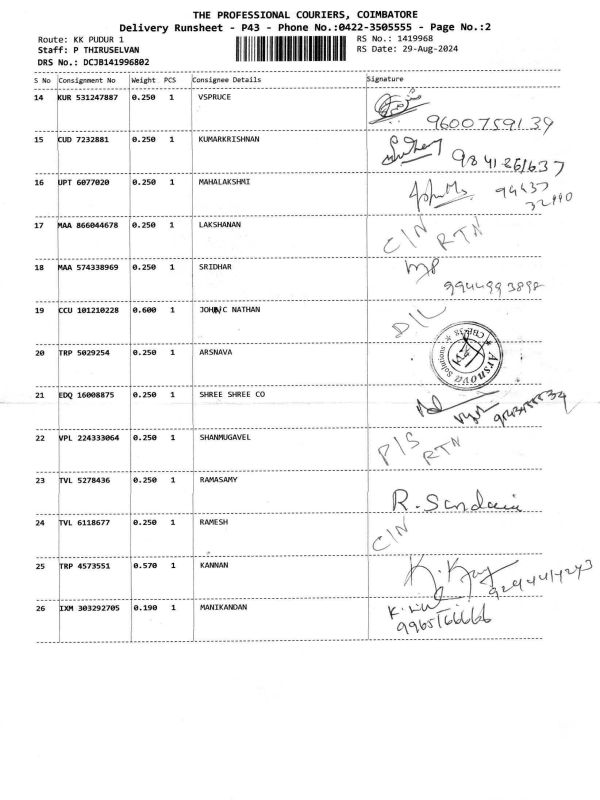 THE PROFESSIONAL COURIERS, COIMBATORE
Delivery Runsheet - P43 - Phone No.:0422-3505555 - Page No.:2
Route: KK PUDUR 1 RS No.: 1419968
Staff: P THIRUSELVAN RS Date: 29-Aug-2024
DRS No.: DCJB141996802
S No Consignment No Weight PCS Consignee Details Signature
14 KUR 531247887 0.250 1 VSPRUCE
9600759139
15 CUD 7232881 0.250 1 KUMARKRISHNAN
16 UPT 6077020 0.250 1 MAHALAKSHMI
17 MAA 866044678 0.250 1 LAKSHANAN
C/N RTN
18 MAA 574338969 0.250 1 SRIDHAR
9944993898
19 CCU 101210228 0.600 1 NATHAN
D/L
20 TRP 5029254 0.250 1 ARSNAVA
Arsnova Solutions CBE-38
21 EDQ 16008875 0.250 1 SHREE SHREE CO
22 VPL 224333064 0.250 1 SHANMUGAVEL
P/S RTN
23 TVL 5278436 0.250 1 RAMASAMY
R.
24 TVL 6118677 0.250 1 RAMESH
C/N
25 TRP 4573551 0.570 1 KANNAN
26 IXM 303292705 0.190 1 MANIKANDAN